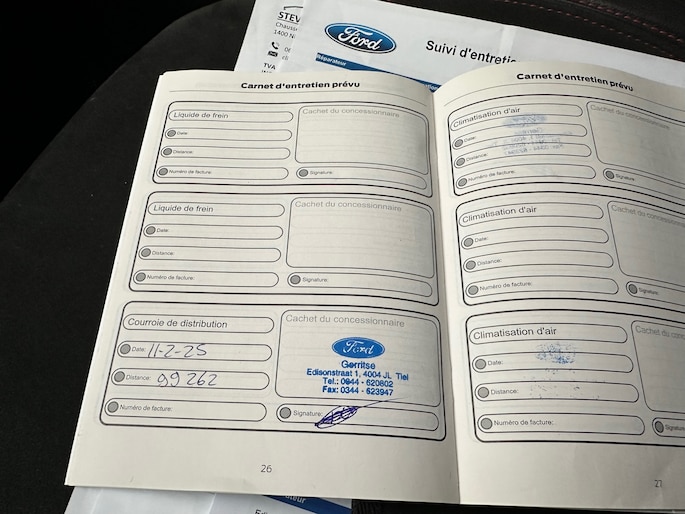 STEV
Chaussé
1400 Ni
TVA
Ford
Suivi d'entretie
Réparateur
Carnet d'entretien prévu
Liquide de frein
Date:
Distance:
Numéro de facture:
Cachet du concessionnaire
Signature:
Liquide de frein
Date:
Distance:
Numéro de facture:
Cachet du concessionnaire
Signature:
Courroie de distribution
Date: 11-2-25
Distance: 99 262
Numéro de facture:
Cachet du concessionnaire
Ford
Gerritse
Edisonstraat 1, 4004 JL Tiel
Tel.: 0344 - 620802
Fax: 0344 - 623947
Signature:
26
Carnet d'entretien prévu
Climatisation d'air
Date:
Distance:
Numéro de facture:
Cachet du concessionnaire
Signature:
Climatisation d'air
Date:
Distance:
Numéro de facture:
Cachet du conces
Signature:
Climatisation d'air
Date:
Distance:
Numéro de facture:
Cachet du co
Signature
27
ateur